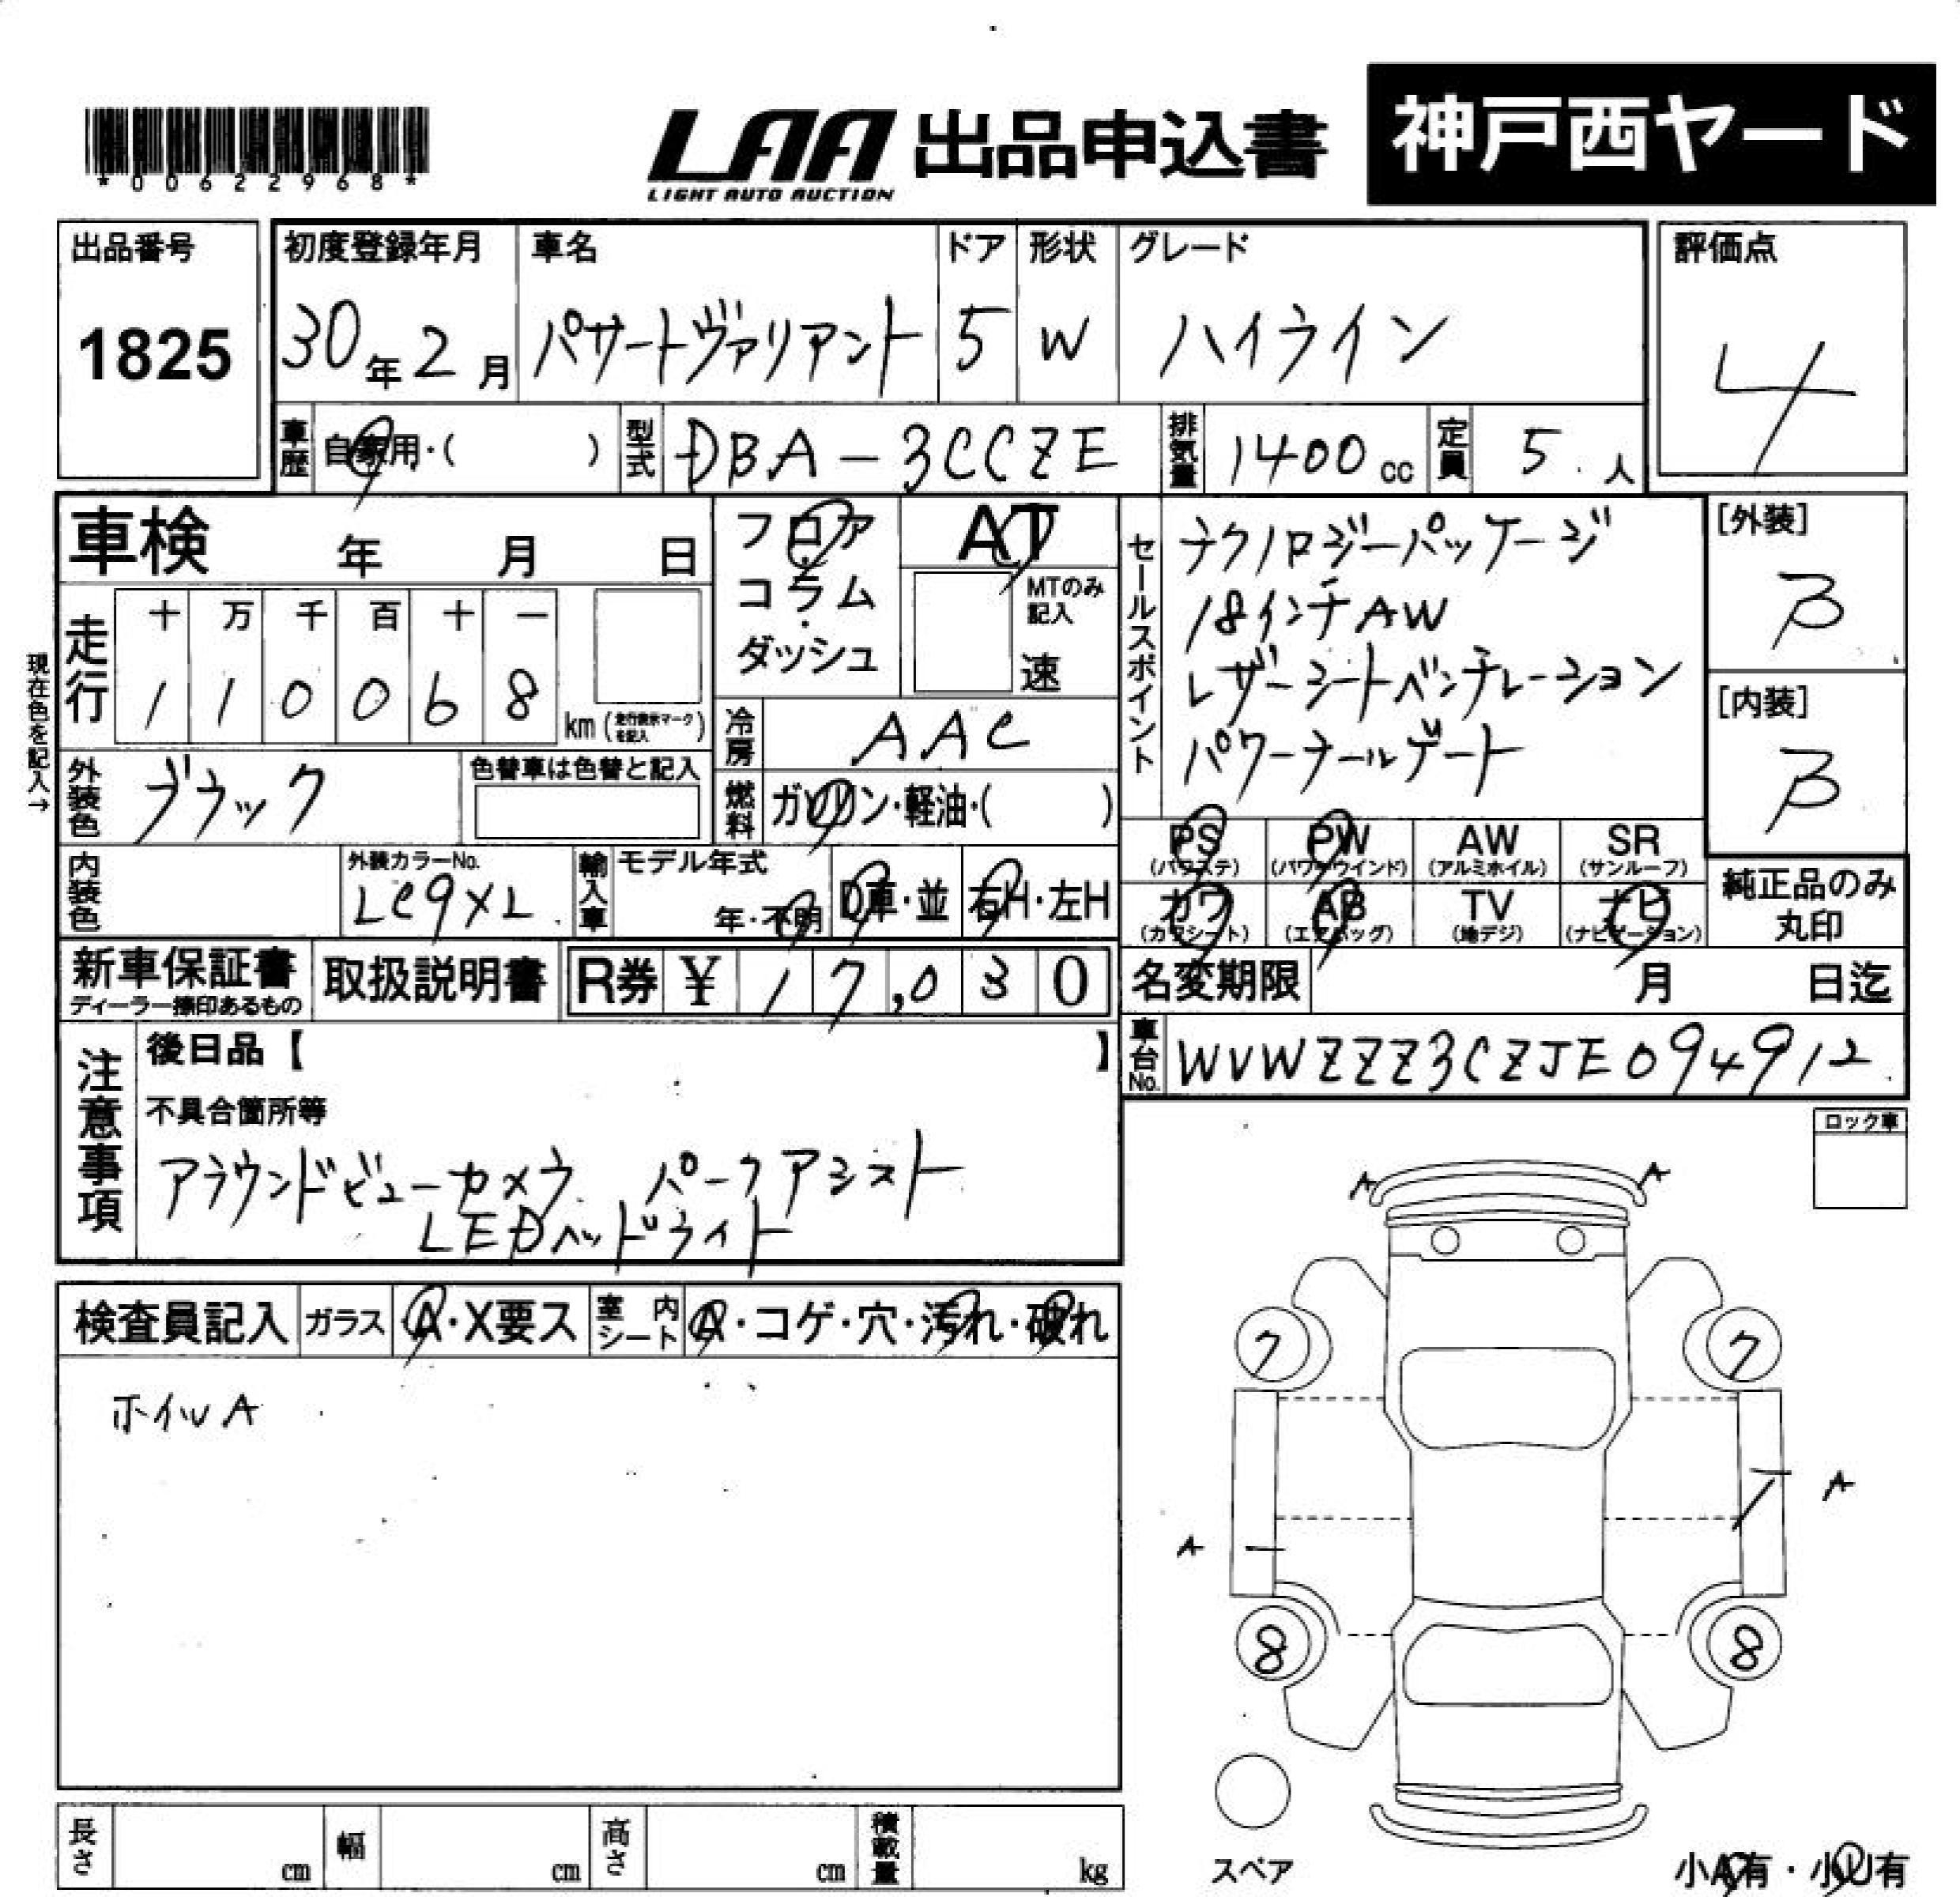 *00622968*
LAA 出品申込書 神戸西ヤード
LIGHT AUTO AUCTION
出品番号 初度登録年月 車名 ドア 形状 グレード 評価点
1825 30年2月 パサートヴァリアント 5 W ハイライン 4
車歴 自家用・( ) 型式 DBA-3CCZE 排気量 1400cc 定員 5人
車検 年 月 日
フロア・コラム・ダッシュ
AT
MTのみ記入
速
セールスポイント
テクノロジーパッケージ
18インチAW
レザーシートベンチレーション
パワーテールゲート
[外装]
B
[内装]
B
現在色を記入→
走行 十 万 千 百 十 一
1 1 0 0 6 8 km (走行表示マークを記入)
冷房 AAC
外装色 ブラック 色替車は色替と記入
燃料 ガソリン・軽油・( )
PS PW AW SR
(パワステ) (パワーウインド) (アルミホイル) (サンルーフ)
カワ AB TV ナビ
(カワシート) (エアバッグ) (地デジ) (ナビゲーション)
純正品のみ
丸印
内装色 外装カラーNo. LC9XL 輸入車 モデル年式 年・不明 D車・並 右H・左H
新車保証書 取扱説明書 R券 ¥ 17,030
ディーラー捺印あるもの
名変期限 月 日迄
車台No. WVWZZZ3CZJE094912
注意事項
後日品【 】
不具合箇所等
アラウンドビューカメラ パークアシスト
LEDヘッドライト
ロック車
検査員記入 ガラス A・X要ス 室内シート A・コゲ・穴・汚れ・破れ
ホイルA
A A
7 7
A
A
8 8
スペア
小A有・小U有
長さ cm 幅 cm 高さ cm 積載量 kg